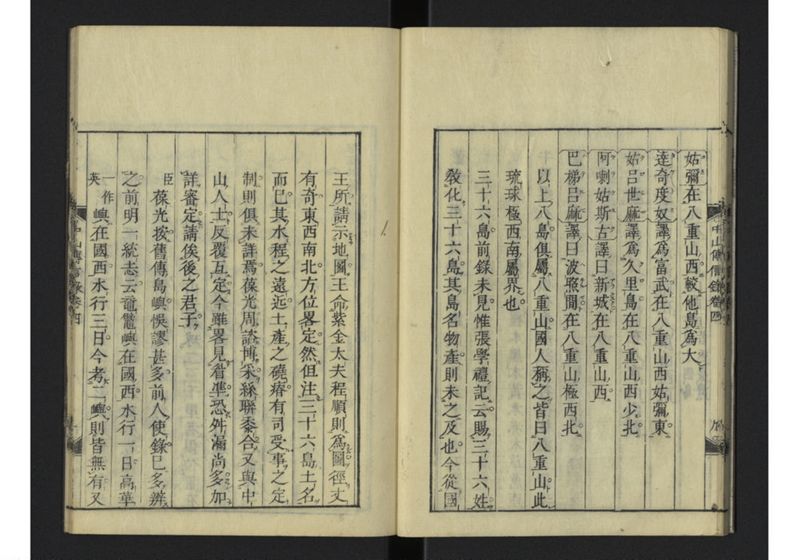 姑彌在八重山西較他島爲大
達奇度奴譯爲富武在八重山西姑彌東
姑呂世麻譯爲久里島在八重山西少北
阿喇姑斯古譯曰新城在八重山西
巴梯呂麻譯曰波照間在八重山極西北
以上八島俱屬八重山國人稱之皆曰八重山此
琉球極西南屬界也
三十六島前錄未見惟張學禮記云賜三十六姓
敎化三十六島其島名物產則未之及也今從國
中山傳信錄卷四
王所請示地圖王命紫金大夫程順則爲圖徑丈
有奇東西南北方位畧定然但注三十六島土名
而已其水程之遠近土產之磽瘠有司受事之定
制則俱未詳焉葆光周諮博采絲聯黍合又與中
山人士反覆互定今雖畧見眉準恐舛漏尚多加
詳審定請俟後之君子
臣葆光按舊傳島嶼悞謬甚多前人使錄已多辨
之前明一統志云黿鼊嶼在國西水行一日高華
嶼一作英在國西水行三日今考二嶼則皆無有又
中山傳信錄卷四